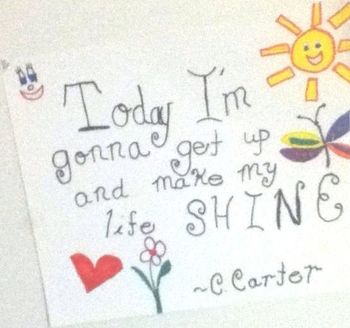 Today I'm
gonna get up
and make my
life SHINE
~C. Carter